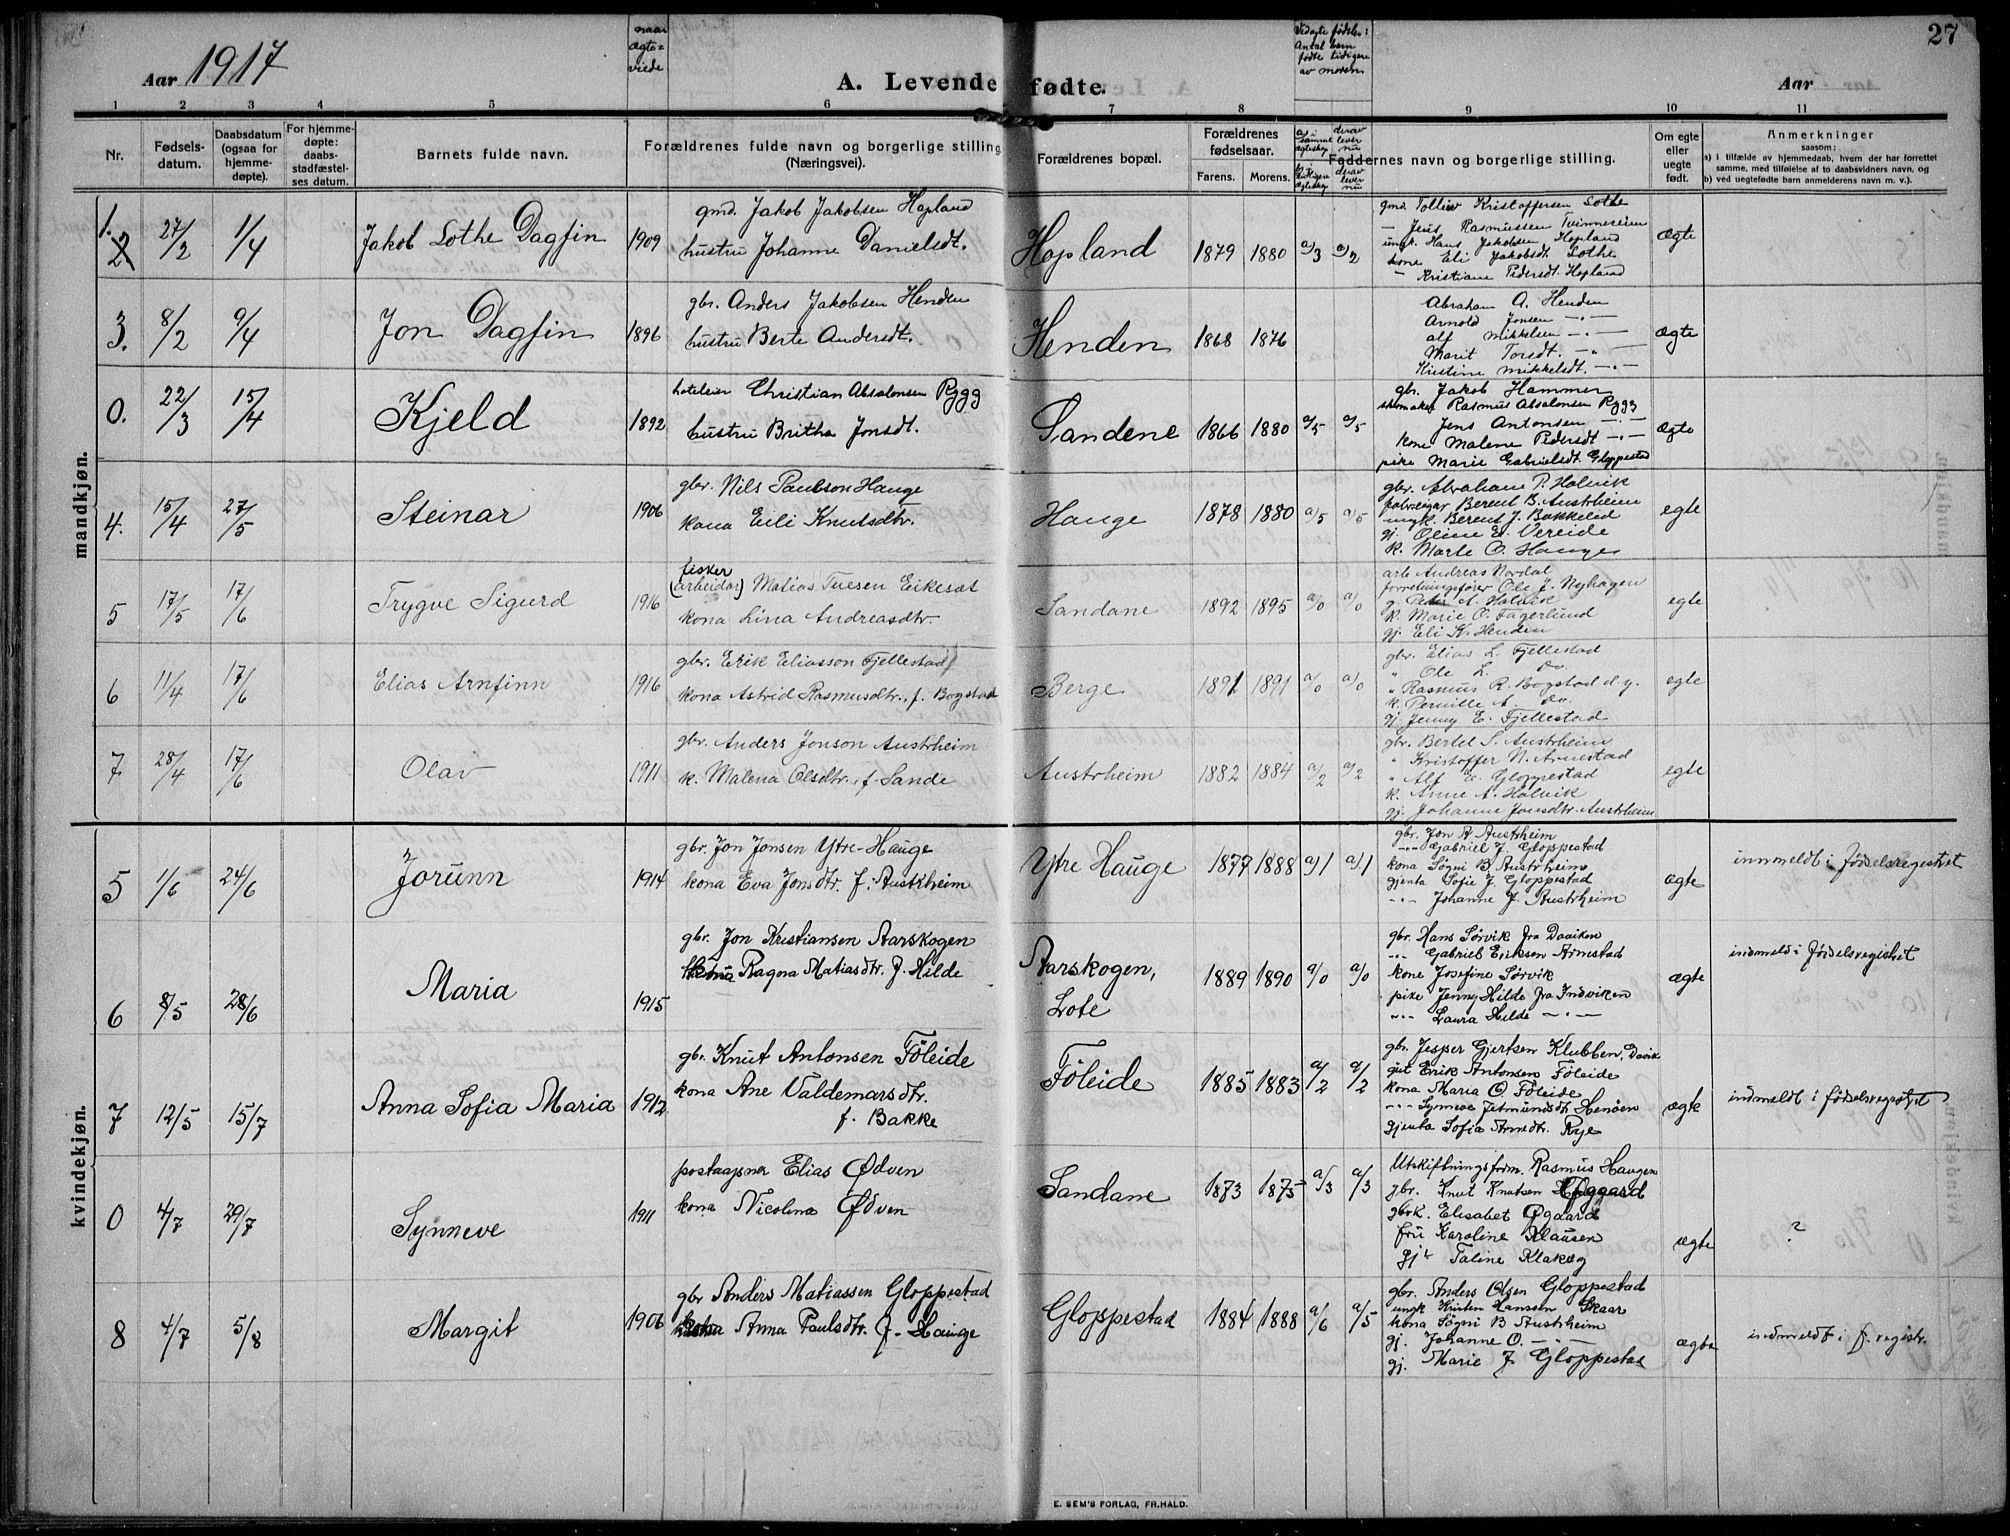 27
Aar 1917
A. Levende fødte.
Aar
naar ægteviede
Vedægte fødsler: Antal barn fødte tidligere av moren
1 2 3 4 5 6 7 8 9 10 11
Nr.
Fødselsdatum.
Daabsdatum (ogsaa for hjemmedøpte).
For hjemmedøpte: daabsstadfæstelses datum.
Barnets fulde navn.
Forældrenes fulde navn og borgerlige stilling (Næringsvei).
Forældrenes bopæl.
Forældrenes fødselsaar.
Farens. Morens.
a) i samme ægteskap
derav lever nu
b) i tidligere ægteskap
derav lever nu
Faddernes navn og borgerlige stilling.
Om egte eller uegte født.
Anmerkninger
saasom:
a) i tilfælde av hjemmedaab, hvem der har forrettet samme, med tilføielse af to daabsvidners navn, og
b) ved uegtefødte barn anmelderens navn m. v.).
mandkjøn.
1. 2 27/2 1/4 Jakob Lothe Dagfin 1909 gmd. Jakob Jakobsen Hopland
hustru Johanne Danielsdt. Hopland 1879 1880 a/3 a/2 ægte
gmd. Tolleiv Kristoffersen Lothe
— Jens Rasmussen Tvinnereim
ungk. Hans Jakobsen Hopland
kone Eli Jakobsdt. Lothe
— Kristiane Pedersdt. Hopland
3. 8/2 9/4 Jon Dagfin 1896 gbr. Anders Jakobsen Henden
hustru Berte Andersdt. Henden 1868 1876 ægte
Abraham A. Henden
Arnold Jonsen —"—
Alf Mikkelsen —"—
Marit Torsdt. —"—
Kristine Mikkelsdt. —"—
0. 22/3 15/4 Kjeld 1892 hoteleier Christian Absalonsen Rygg
hustru Britha Jonsdt. Sandene 1866 1880 a/5 a/5 Ægte
gbr. Jakob Hammer
skomaker Rasmus Absalonsen Rygg
Jens Antonsen —"—
kone Malene Pedersdt —"—
pike Marie Gabrielsdt. Gloppestad
4. 15/4 27/5 Steinar 1906 gbr. Nils Paulson Hauge
kona Eili Knutsdtr. Hauge 1878 1880 a/5 a/5 egte
gbr. Abraham P. Holvik
fabrikeigar Berent B. Austrheim
ungk. Berent J. Bakkelid
gj. Oline E. Vereide
k. Marte O. Hauge
5 17/5 17/6 Trygve Sigurd 1916 fisker
(arbeidar) Matias Tuesen Eikesæt
kona Lina Andreasdtr. Sandane 1892 1895 a/0 a/0 egte
arb. Andreas Nordal
forretningsfører Ole J. Nyhagen
A. Holvik
k. Marie O. Fagerlund
gj. Eli K. Henden
6 11/4 17/6 Elias Arnfinn 1916 gbr. Erik Eliasson Fjellestad
kona Astrid Rasmusdtr., f. Bogstad Berge 1891 1891 a/0 a/0 egte
gbr. Elias L. Fjellestad
" Ole L. do.
" Rasmus R. Bogstad d.y.
k. Pernille A. do.
gj. Jenny E. Fjellestad
7 28/4 17/6 Olav 1911 gbr. Anders Jonson Austrheim
k. Malena Olsdtr., f. Sande Austrheim 1882 1884 a/2 a/2 egte
gbr. Bertel S. Austrheim
" Kristoffer N. Arnestad
" Alf E. Gloppestad
k. Anne A. Holvik
gj. Johanne Jonsdtr. Austrheim
kvindekjøn.
5 1/6 24/6 Jorunn 1914 gbr. Jon Jonsen Ytre-Hauge
kona Eva Jonsdtr. f. Austrheim Ytre Hauge 1877 1888 a/1 a/1 ægte innmeldt i fødselsregistret
gbr. Jon A Austrheim
—"— Gabriel J. Gloppestad
kona Søgni B. Austrheim
gjenta Sofie J. Gloppestad
—"— Johanne J. Austrheim
6 8/5 28/6 Maria 1915 gbr. Jon Kristiansen Aarskogen
Ragna Matiasdtr. f. Hilde Aarskogen, Lote 1889 1890 a/0 a/0 ægte indmeld i fødselsregistret
gbr. Hans Sørvik fra Daviken
—"— Gabriel Eriksen Arnestad
kone Josefine Sørvik
pike Jenny Hilde fra Indviken
—"— Laura Hilde —"—
7 12/5 15/7 Anna Sofia Maria 1912 gbr. Knut Antonsen Föleide
kona Ane Valdemarsdtr.
f. Bakke Föleide 1885 1883 a/2 a/2 ægte indmeldt i fødselsregistret
gbr. Jesper Gjertsen Klubben, Davik
gut Erik Antonsen Föleide
kona Maria O. Föleide
—"— Synneve Jetmundsdtr Henöen
gjenta Sofia Arnedtr. Rye
0 4/7 29/7 Synneve 1911 postaapner Elias Ødven
kona Nicolina Ødven Sandane 1873 1875 a/3 a/3 ægte ?
Utskiftningsform. Rasmus Haugen
gbr. Knut Knutsen Øggard
gbrk. Elisabet Øgaard
fru Karoline Klausen
gj. Taline Klakeg
8 4/7 5/8 Margit 1906 gbr Anders Matiassen Gloppestad
Anna Paulsdtr. f. Hauge Gloppestad 1884 1888 a/6 a/5 ægte indmeldt i f. registr.
gbr. Anders Olsen Gloppestad
ungk Kristen Hanssen Skaar
kona Søgni B Austrheim
gj. Johanne O. —"—
gj. Marie J. Gloppestad
E. SEM'S FORLAG, FR.HALD.